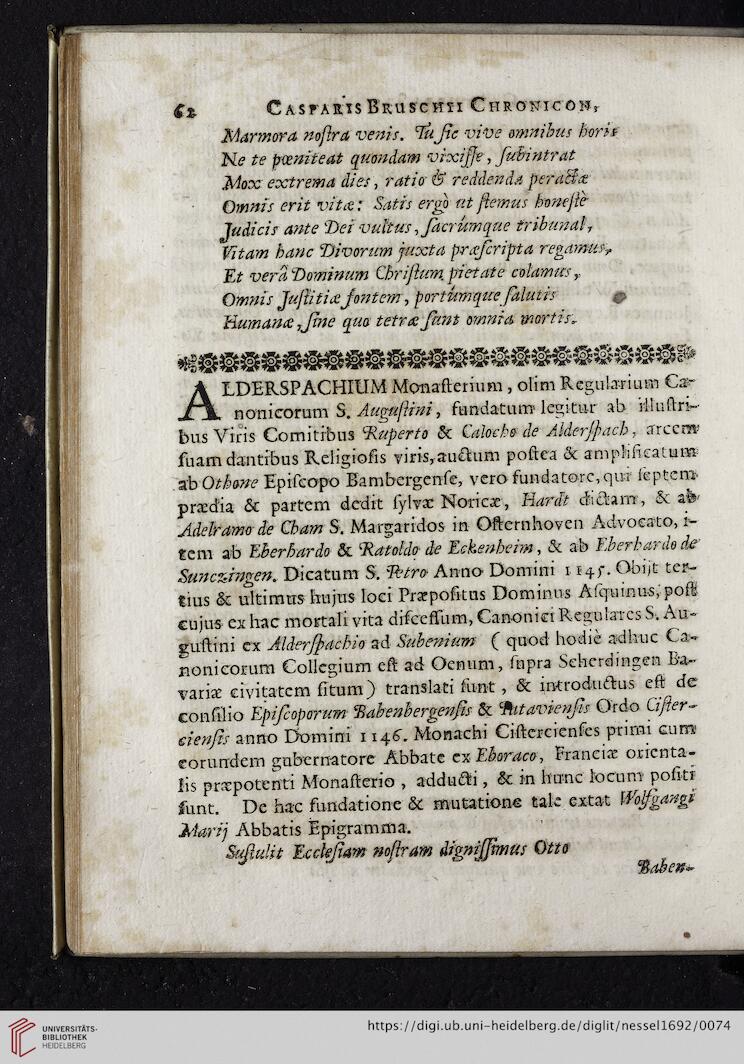 62 CASPARIS BRUSCHII CHRONICON,
Marmora noſtra venis. Tu ſic vive omnibus horis
Ne te pœniteat quondam vixiſſe, ſubintrat
Mox extrema dies, ratio & reddenda peractæ
Omnis erit vitæ: Satis ergò ut ſtemus honeſtè
Judicis ante Dei vultus, ſacrúmque tribunal,
Vitam hanc Divorum juxta præſcripta regamus,
Et verâ Dominum Chriſtum pietate colamus,
Omnis Juſtitiæ fontem, portúmque ſalutis
Humanæ, ſine quo tetræ ſunt omnia mortis.
ALDERSPACHIUM Monaſterium, olim Regularium Ca-
nonicorum S. Auguſtini, fundatum legitur ab illuſtri-
bus Viris Comitibus Ruperto & Calocho de Alderſpach, arcem
ſuam dantibus Religioſis viris, auctum poſtea & amplificatum
ab Othone Epiſcopo Bambergenſe, vero fundatore, qui ſeptem
prædia & partem dedit ſylvæ Noricæ, Hardt dictam, & ab
Adelramo de Cham S. Margaridos in Oſternhoven Advocato, i-
tem ab Eberhardo & Ratoldo de Eckenheim, & ab Eberhardo de
Sunczingen. Dicatum S. Petro Anno Domini 1145. Obijt ter-
tius & ultimus hujus loci Præpoſitus Dominus Aſquinus, poſt
cujus ex hac mortali vita diſceſſum, Canonici Regulares S. Au-
guſtini ex Alderſpachio ad Subenium ( quod hodiè adhuc Ca-
nonicorum Collegium eſt ad Oenum, ſupra Scherdingen Ba-
variæ civitatem ſitum) translati ſunt, & introductus eſt de
conſilio Epiſcoporum Babenbergenſis & Putavienſis Ordo Ciſter-
cienſis anno Domini 1146. Monachi Ciſtercienſes primi cum
eorundem gubernatore Abbate ex Eboraco, Franciæ orienta-
lis præpotenti Monaſterio, adducti, & in hunc locum poſiti
ſunt. De hac fundatione & mutatione tale extat Wolfgangi
Marij Abbatis Epigramma.
Suſtulit Eccleſiam noſtram digniſſimus Otto
Baben-
UNIVERSITÄTS-
BIBLIOTHEK
HEIDELBERG
https://digi.ub.uni-heidelberg.de/diglit/nessel1692/0074